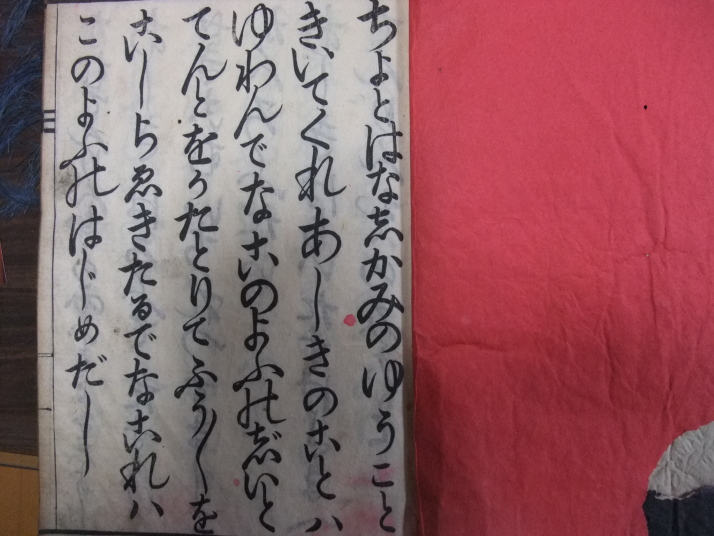 ちよとはなしかみのゆうこと
きいてくれあしきのことハ
ゆわんでなこのよふのぢいと
てんとをかたとりてふうふを
こしらゑきたるでなこれハ
このよふのはじめだし
三